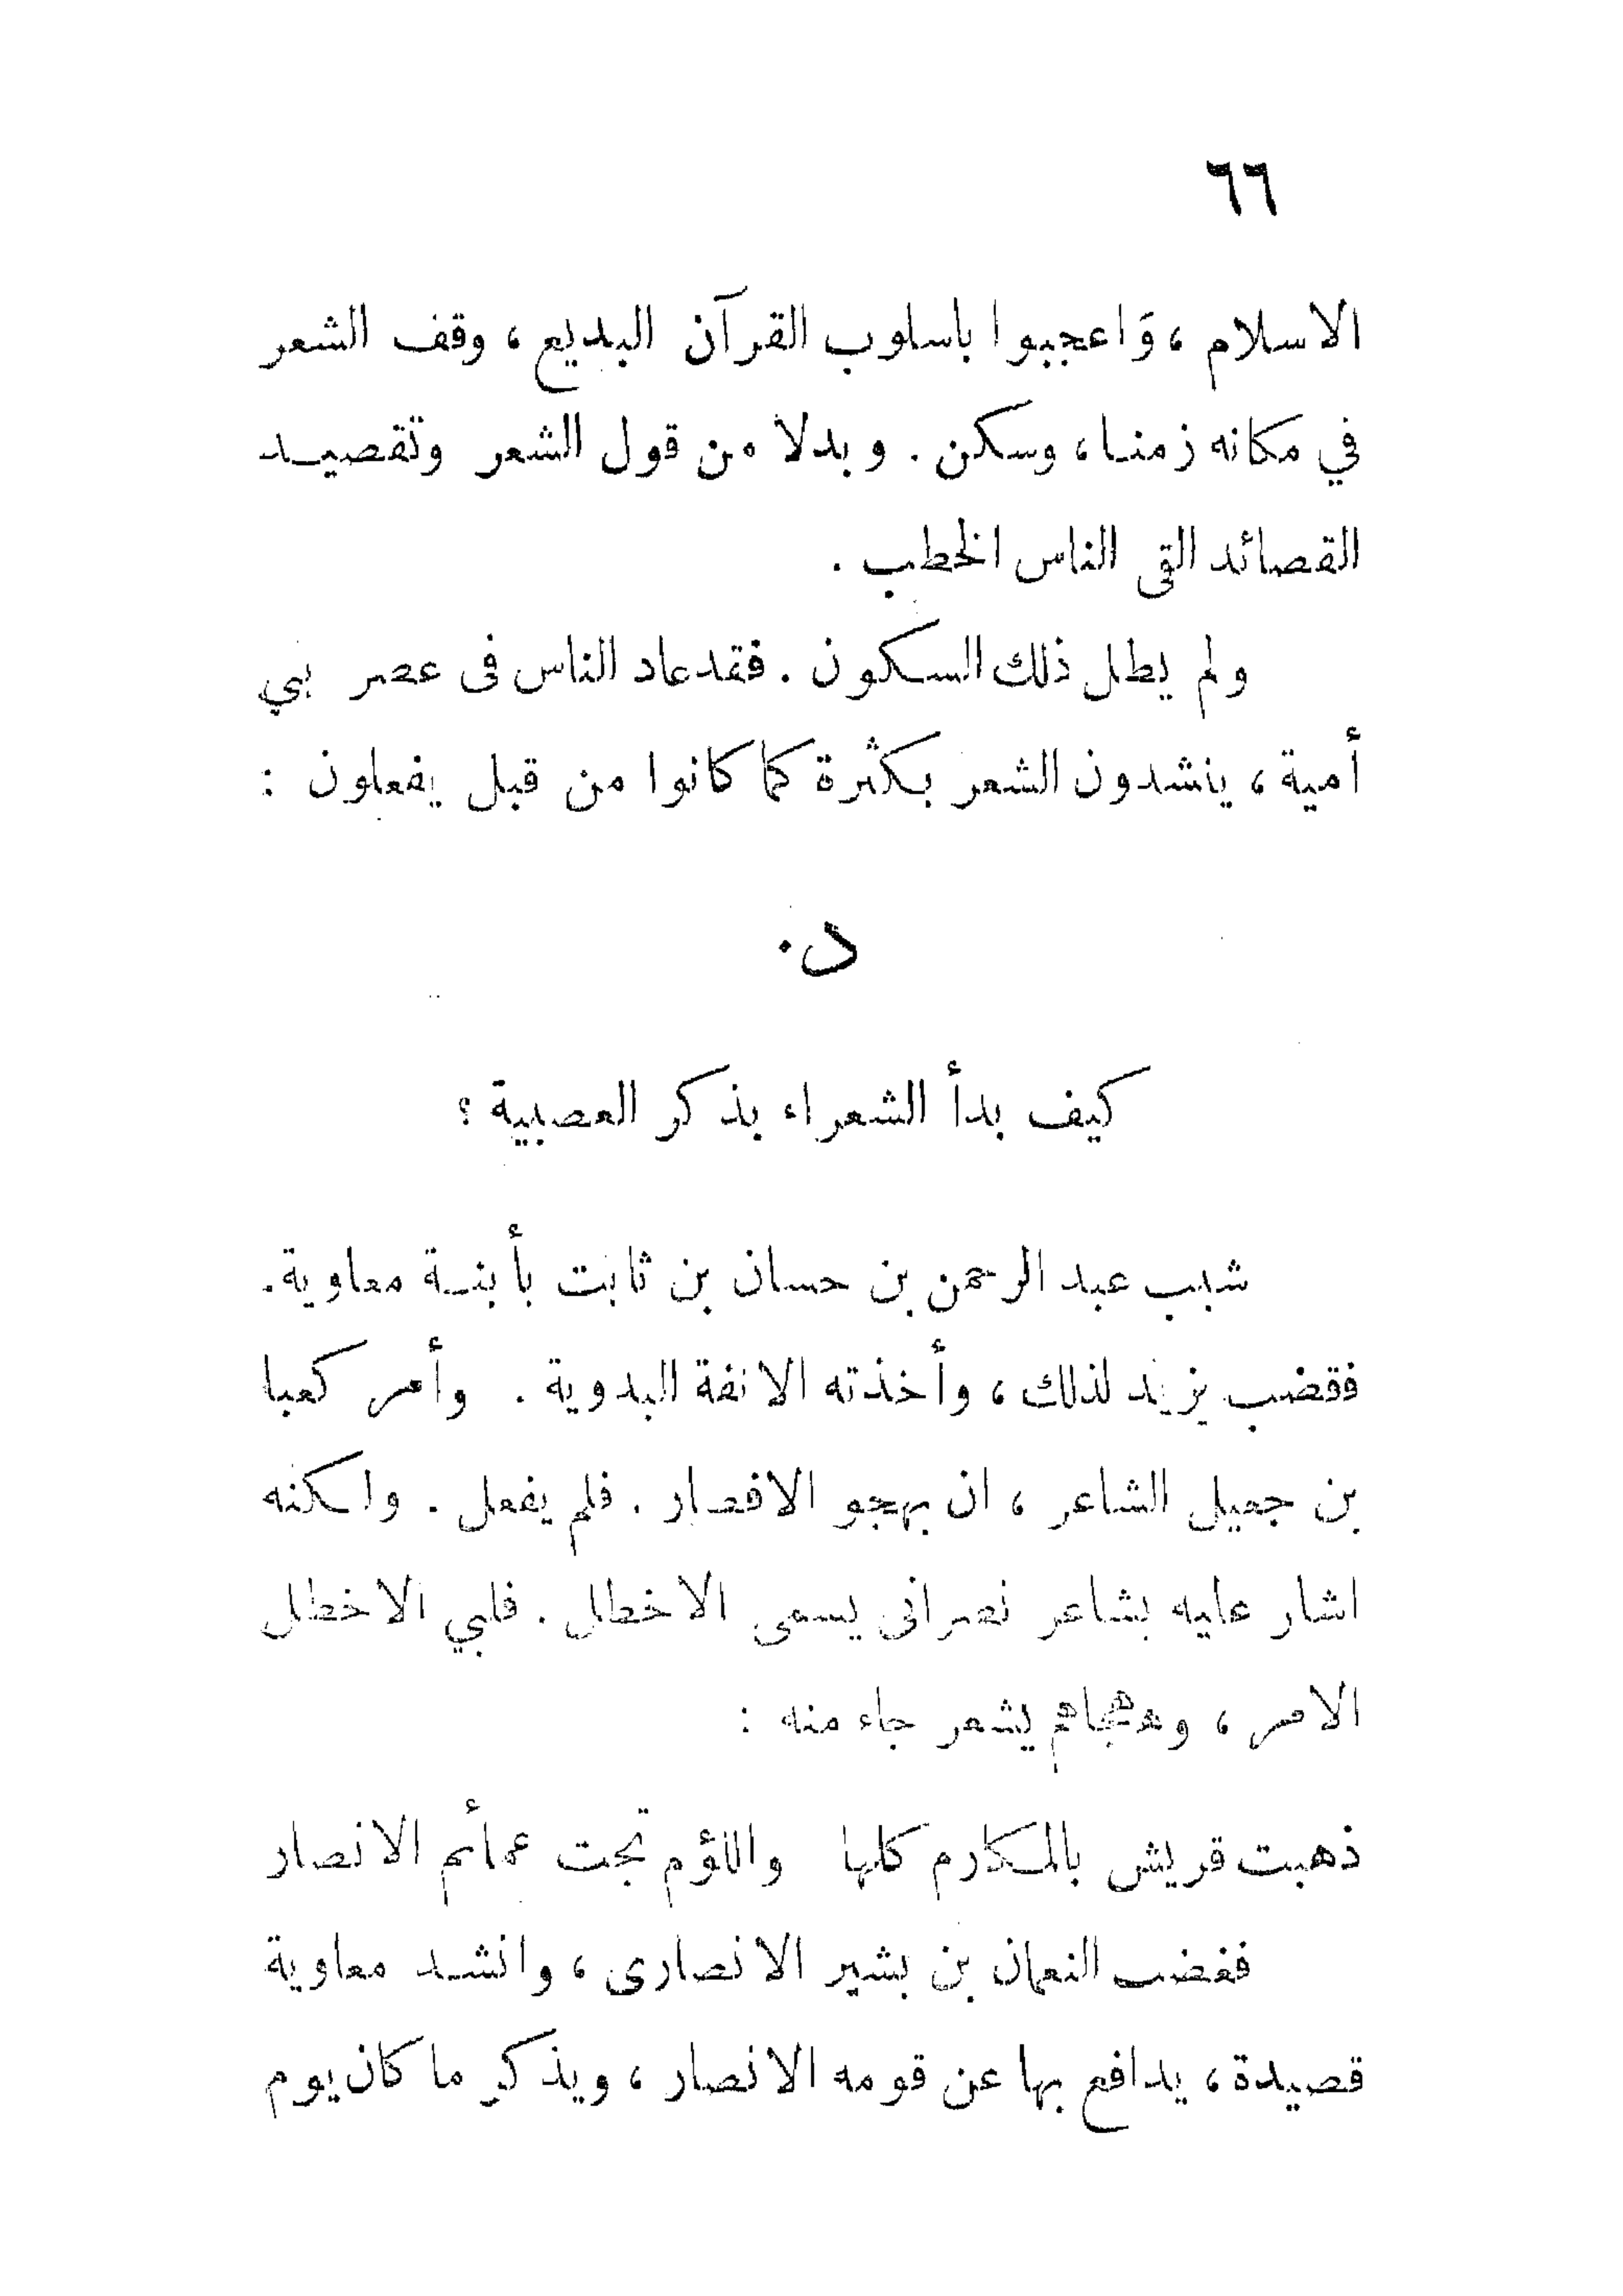 ٦٦
الاسلام ، وَاعجبوا باسلوب القرآن البديع ، وقف الشعر
في مكانه زمنا ، وسكن . وبدلا من قول الشعر وتقصيد
القصائد القى الناس الخطب .
ولم يطل ذلك السكون . فقد عاد الناس فى عصر بي
أمية ، ينشدون الشعر بكثرة كما كانوا من قبل يفعلون :
د .
كيف بدأ الشعراء بذكر العصبية ؟
شبب عبد الرحمن بن حسان بن ثابت بأبنة معاوية .
فقضب يزيد لذلك ، وأخذته الانفة البدوية . وأمر كعبا
بن جعيل الشاعر ، ان يهجو الافصار . فلم يفعل . ولكنه
اشار عليه بشاعر نصرانى يسمى الاخطل . فلبي الاخطل
الامر ، وهجاهم بشعر جاء منه :
ذهبت قريش بالمكارم كلها واللؤم تحت عمأم الانصار
فغضب النعمان بن بشير الانصارى ، وانشد معاوية
قصيدة ، يدافع بها عن قومه الانصار ، ويذكر ما كان يوم